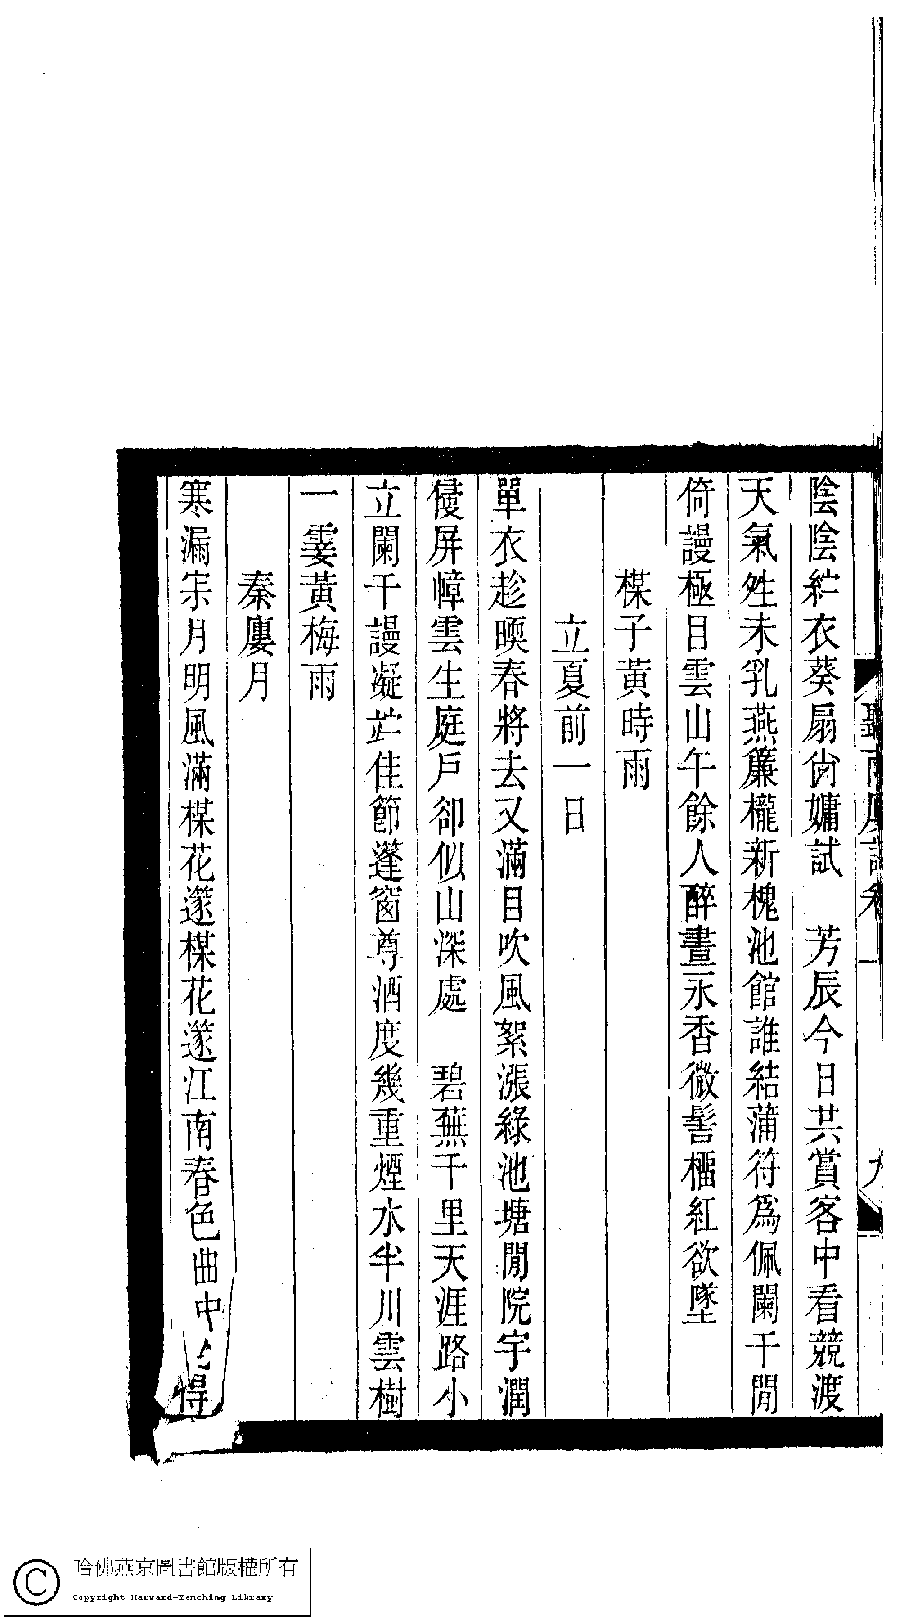 聽雨廔詞卷一 九
陰陰紵衣葵扇尙嫞試　芳辰今日共賞客中看競渡
天氣夝未乳燕簾櫳新槐池館誰結蒲符爲佩闌干閒
倚謾極目雲山午餘人醉晝永香微髻橊紅欲墜
楳子黃時雨
立夏前一日
單衣趁㬉春將去又滿目吹風絮漲綠池塘閒院宇潤
侵屏幛雲生庭戶卻似山深處　碧蕪千里天涯路小
立闌干謾凝竚佳節篷窗尊酒度幾重煙水半川雲樹
一霎黃梅雨
秦廔月
寒漏宋月明風滿楳花邃楳花邃江南春色曲中得
哈佛燕京圖書館版權所有
Copyright Harvard-Yenching Library